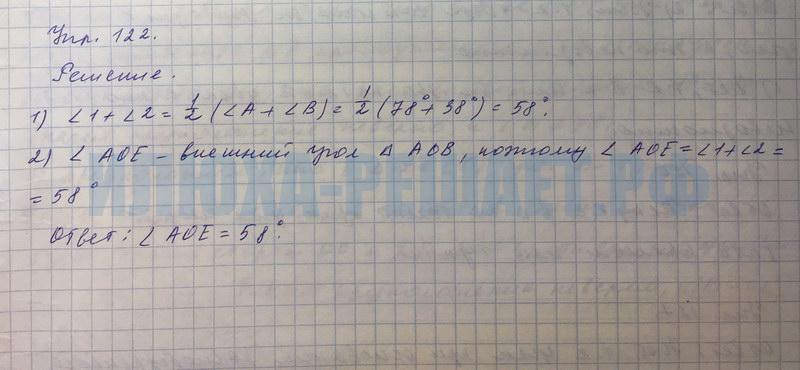 Упр. 122.
Решение.
1) ∠1+∠2 = 1/2 (∠A + ∠B) = 1/2 (78° + 38°) = 58°.
2) ∠ AOE – внешний угол △ AOB, поэтому ∠ AOE = ∠1+∠2 =
= 58°
Ответ: ∠ AOE = 58°.
ИЛЮХА-РЕШАЕТ.РФ